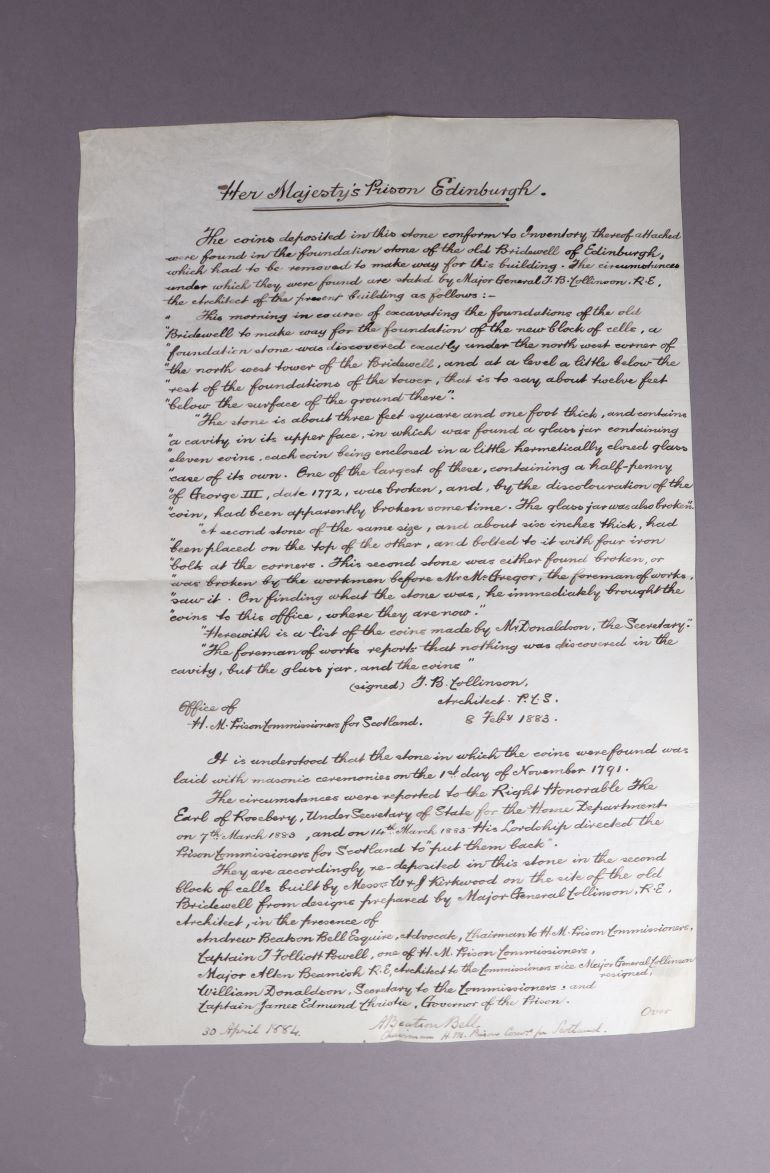 Her Majesty's Prison Edinburgh.
The coins deposited in this stone conform to Inventory thereof attached
were found in the foundation stone of the old Bridewell of Edinburgh,
which had to be removed to make way for this building. The circumstances
under which they were found are stated by Major General T. B. Collinson. R.E,
the Architect of the present building as follows :-
" This morning in course of excavating the foundations of the old
"Bridewell to make way for the foundation of the new block of cells, a
"foundation stone was discovered exactly under the north west corner of
"the north west tower of the Bridewell, and at a level a little below the
"rest of the foundations of the tower, that is to say, about twelve feet
"below the surface of the ground there".
"The stone is about three feet square and one foot thick, and contains
"a cavity in its upper face, in which was found a glass jar containing
"eleven coins, each coin being enclosed in a little hermetically closed glass
"case of its own. One of the largest of these, containing a half-penny
"of George III, date 1772, was broken, and, by the discolouration of the
"coin, had been apparently broken some time. The glass jar was also broken".
"A second stone of the same size, and about six inches thick, had
"been placed on the top of the other, and bolted to it with four iron
"bolts at the corners. This second stone was either found broken, or
"was broken by the workmen before Mr McGregor, the foreman of works,
"saw it. On finding what the stone was, he immediately brought the
"coins to this office, where they are now."
"Herewith is a list of the coins made by Mr Donaldson, the Secretary".
"The foreman of works reports that nothing was discovered in the
cavity, but the glass jar, and the coins"
(signed) T. B. Collinson,
Architect. P.C.S.
Office of
H. M. Prison Commissioners for Scotland. 8 Feby 1883.
It is understood that the stone in which the coins were found was
laid with masonic ceremonies on the 1st day of November 1791.
The circumstances were reported to the Right Honorable The
Earl of Rosebery, Under Secretary of State for the Home Department
on 7th March 1883, and on 14th March 1883 His Lordship directed the
Prison Commissioners for Scotland to "put them back".
They are accordingly re-deposited in this stone in the second
block of cells built by Messrs W & J Kirkwood on the site of the old
Bridewell from designs prepared by Major General Collinson, R.E,
Architect, in the presence of
Andrew Beatson Bell Esquire, Advocate, Chairman to H.M. Prison Commissioners,
Captain J Folliott Powell, one of H. M. Prison Commissioners,
Major Alten Beamish R.E, Architect to the Commissioners vice Major General Collinson
resigned,
William Donaldson, Secretary to the Commissioners, and
Captain James Edmund Christie, Governor of the Prison.
Over
30 April 1884. A Beatson Bell,
Chairman H. M. Prison Comrs for Scotland.